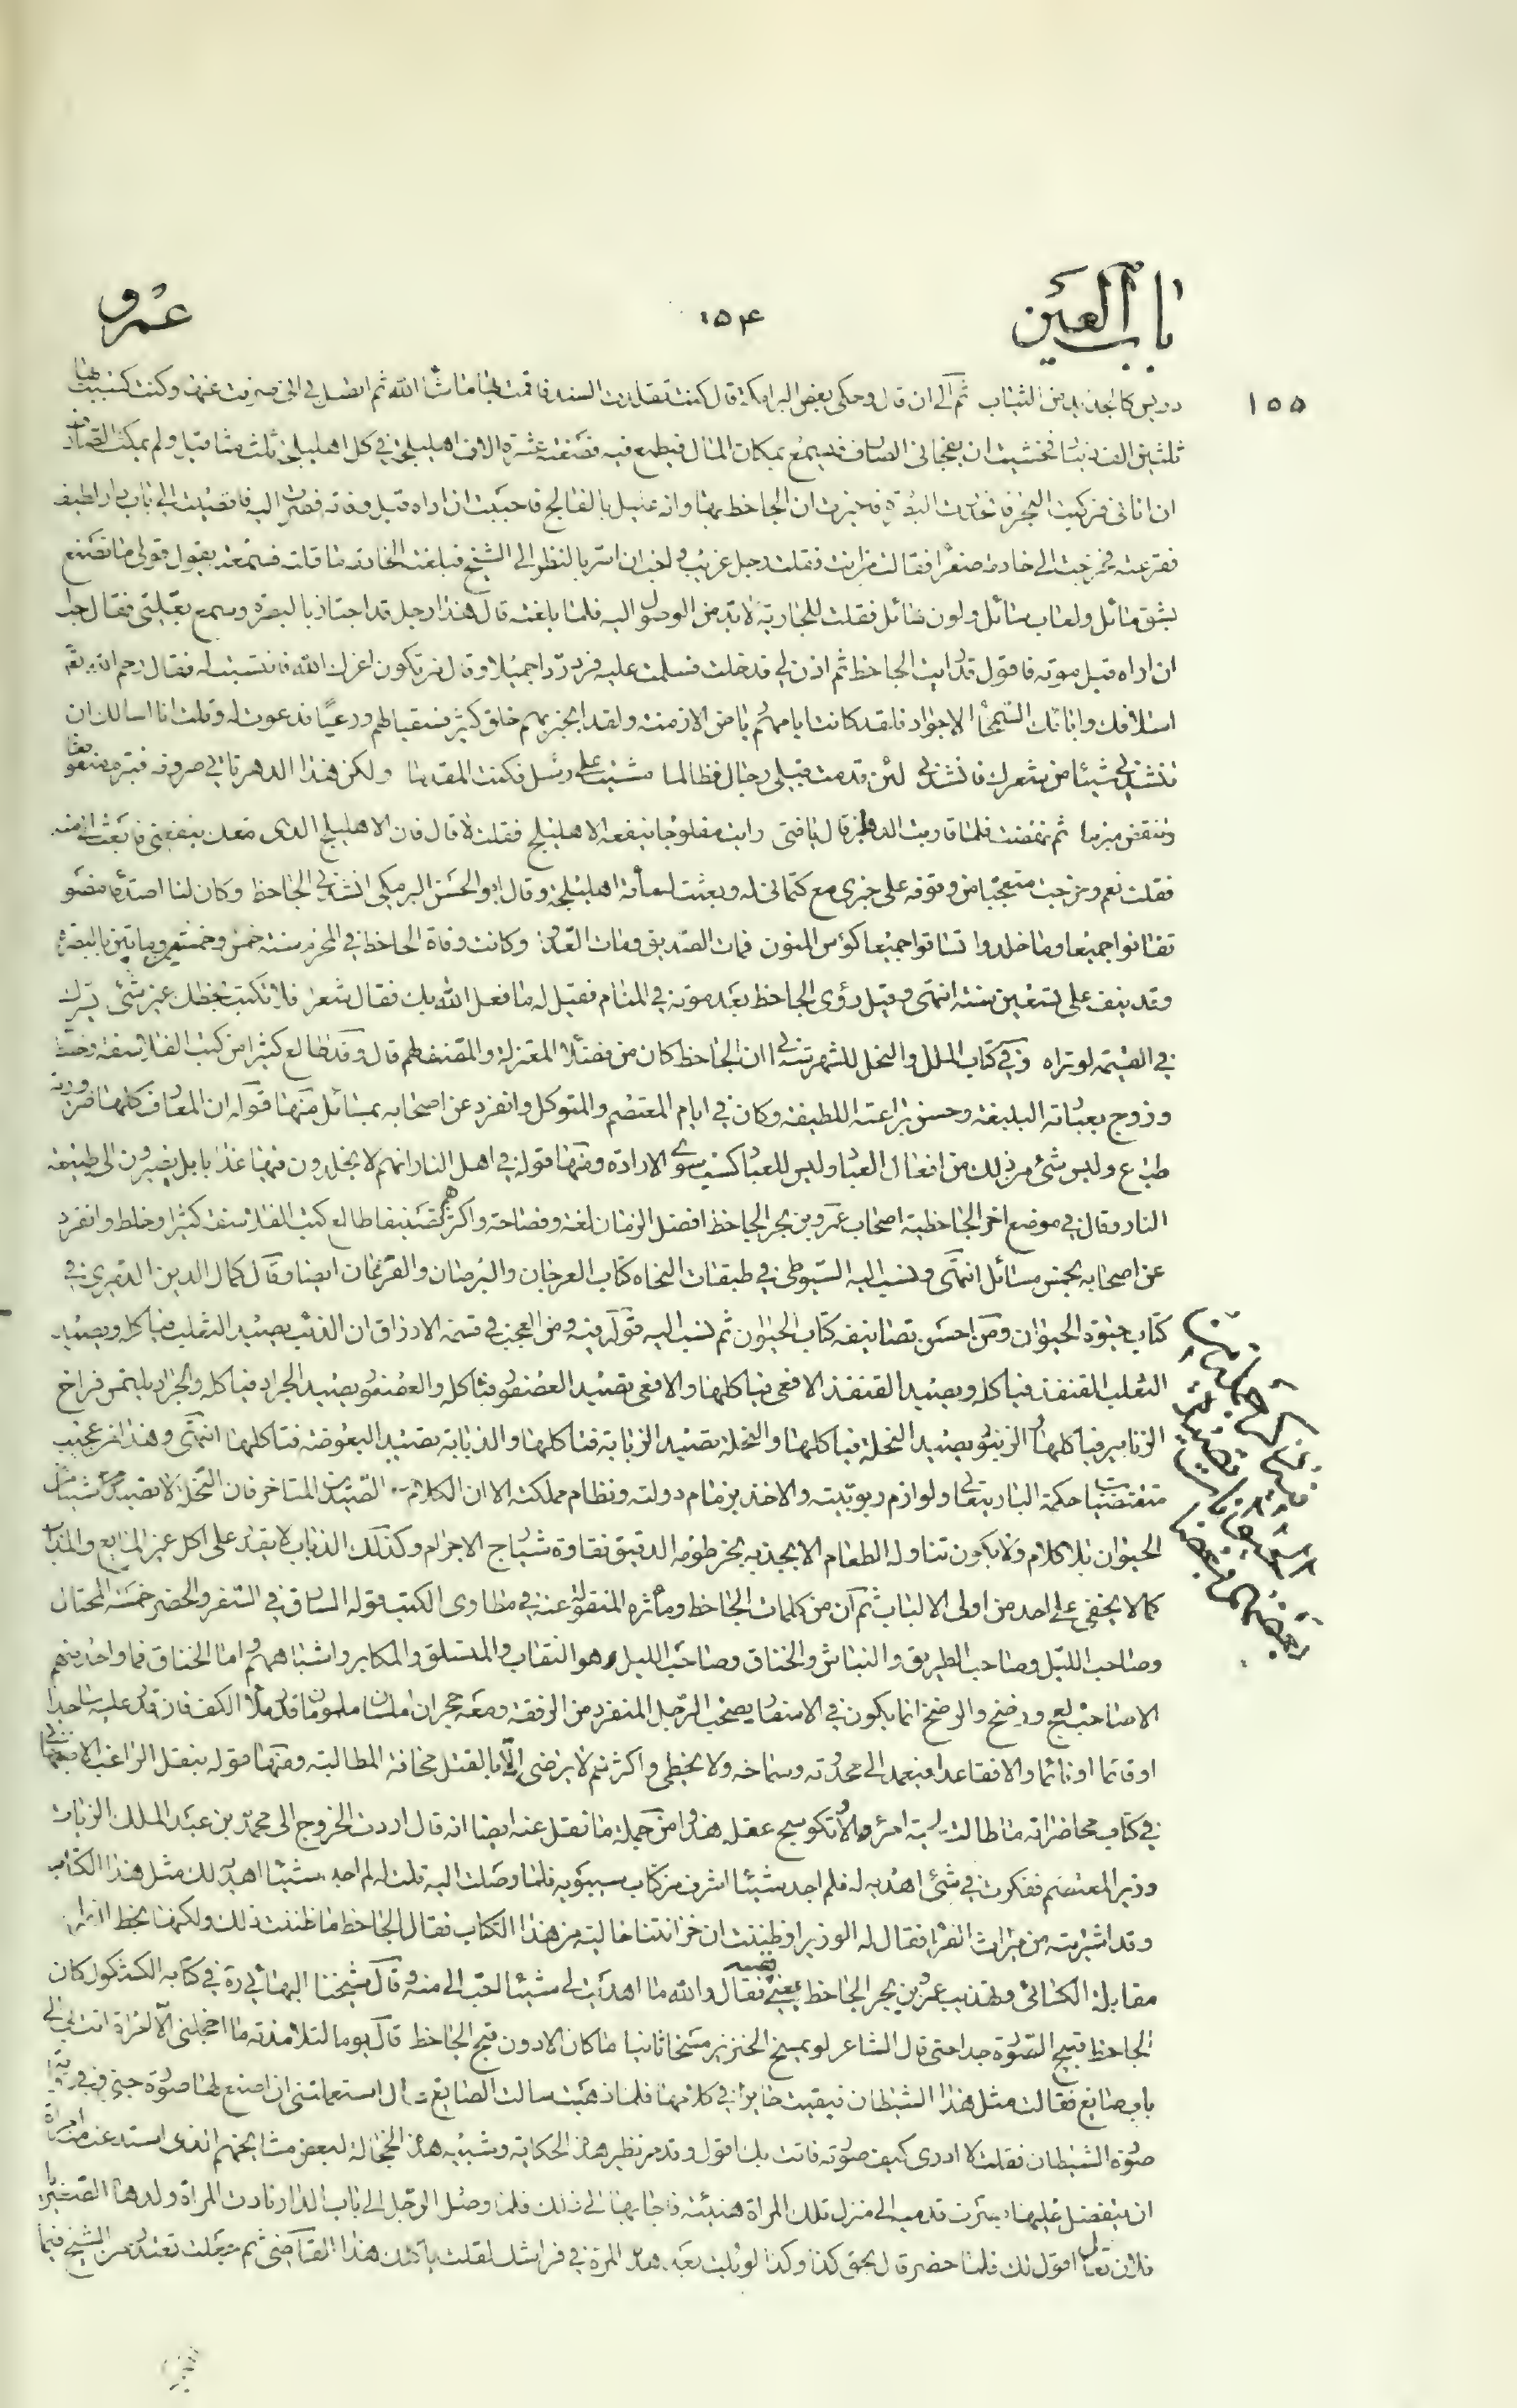 باب العين
١٥٤
عمرو
١٥٥
دريس كالجديد من الثياب ثم الى ان قال وحكى بعض البرامكة قال كنت تقلدت السند فاقمت بها ما شاء الله ثم اتصل بي انى صرفت عنها وكنت كسبت بها
ثلثين الف دينار فخشيت ان يفجأنى الصارف فيسمع بمكان المال فيطمع فيه فصغته عشرة الاف اهليلجة في كل اهليلجة ثلث مثاقيل ولم يمكث الصارف
ان اتانى فركبت البحر فانحدرت البصرة فخبرت ان الجاحظ بها وانه عليل بالفالج فاحببت ان اراه قبل وفاته فصرت اليه فافضيت الى باب دار لطيف
فقرعته فخرجت الى خادمة صفرا فقالت من انت فقلت رجل غريب واحب ان اسر بالنظر الى الشيخ فبلغت الخادمة ما قلت فسمعته يقول قولى ما تصنع
بشق مائل ولعاب سائل ولون حائل فقلت للجارية لا بد من الوصول اليه فلما بلغته قال هذا رجل قد اجتاز بالبصرة وسمع بعلتى فقال احب
ان اراه قبل موته فاقول قد رايت الجاحظ ثم اذن لي فدخلت فسلمت عليه فرد ردا جميلا وقال من تكون اعزك الله فانتسبت له فقال رحم الله تع
اسلافك واباءك السمحاء الاجواد فلقد كانت ايامهم رياض الازمنة ولقد انجبر بهم خلق كثير فسقيا لهم ورعيا فدعوت له وقلت انا اسالك ان
تنشدني شيئا من شعرك فانشدني لئن قدمت قبلى رجال فطالما مشيت على رسل فكنت المقدما ولكن هذا الدهر تاتى صروفه فتبرم منقوضا
وتنقض مبرما ثم نهضت فلما قاربت الدهليز قال يا فتى رايت مفلوجا ينفعه الاهليلج فقلت لا قال فان الاهليلج الذى معك ينفعنى فابعث الى منه
فقلت نعم وخرجت متعجبا من وقوفه على خبرى مع كتمانى له وبعثت له مائة اهليلجة وقال ابو الحسن البرمكي انشدنى الجاحظ وكان لنا اصدقاء مضوا
تفانوا جميعا وما خلدوا تساقوا جميعا كؤس المنون فمات الصديق ومات العدو وكانت وفاة الجاحظ في المحرم سنة خمس وخمسين وماتين بالبصرة
وقد نيف على تسعين سنة انتهى وقيل رؤى الجاحظ بعد موته في المنام فقيل له ما فعل الله بك فقال شعر فلا تكتب بخطك غير شئ يسرك
في القيمة لو تراه وفي كتاب الملل والنحل للشهرستانى ان الجاحظ كان من فضلاء المعتزلة والمصنف لهم قال وقد طالع كثيرا من كتب الفلاسفة وخلط
وروج بعباراته البليغة وحسن براعته اللطيفة وكان في ايام المعتصم والمتوكل وانفرد عن اصحابه بمسائل منها قوله ان المعارف كلها ضرورية
طباع وليس شئ من ذلك من افعال العباد وليس للعباد كسب سوى الارادة ومنها قوله في اهل النار انهم لا يخلدون فيها عذابا بل يصيرون الى طبيعة
النار وقال في موضع اخر الجاحظية اصحاب عمرو بن بحر الجاحظ افضل الزمان لغة وفصاحة واكثرهم تصنيفا طالع كتب الفلاسفة كثيرا وخلط وانفرد
عن اصحابه بخمس مسائل انتهى ونسب اليه السيوطى في طبقات النحاه كتاب العرجان والبرصان والقرعان ايضا وقال كمال الدين الدميرى في
كتاب حيوة الحيوان ومن احسن تصانيفه كتاب الحيوان ثم نسب اليه قوله فيه ومن العجب في قسمة الارزاق ان الذئب يصيد الثعلب فياكله ويصيد
الثعلب القنفذ فياكله ويصيد القنفذ الافعى فياكلها والافعى تصيد العصفور فتاكله والعصفور يصيد الجراد فياكله والجراد يلتمس فراخ
الزنابير فياكلها والزنبور يصيد النحلة فياكلها والنحلة تصيد الذبابة فتاكلها والذبابة تصيد البعوضة فتاكلها انتهى وهذا من عجيب
مقتضيات حكمة البارى تعالى ولوازم ربوبيته والاخذ بزمام دولته ونظام مملكته الا ان الكلام في الصيدين المتاخر فان النحلة لا تصيد شيئا من
الحيوان بلا كلام ولا يكون تناوله الطعام الا بجذبه بخرطومه الدقيق نقاوة شباج الاجرام وكذلك الذباب لا يقدر على اكل غير المايع والمذاب
كما لا يخفى على احد من اولى الالباب ثم ان من كلمات الجاحظ ومأثره المنقولة عنه في مطاوى الكتب قوله السراق في السفر والحضر خمسة المحتال
وصاحب الليل وصاحب الطريق والنباش والخناق وصاحب الليل هو النقاب والمتسلق والمكابر واشباههم واما الخناق فما واحد منهم
الا صاحب بعج ورضخ والرضخ انما يكون في الاسفار يصحب الرجل المنفرد من الرفقة ومعه حجران املسان ملمومان قدر ملأ الكف فان قدر عليه ساجدا
او قائما او نائما والا فقاعدا فيعمد الى محدته وسماخه ولا يخطى واكثرهم لا يرضى الا بالقتل مخافة المطالبة ومنها قوله بنقل الراغب الاصبهانى
في كتاب محاضراته ما طالت لحية امرء الا تكوسج عقله هذا ومن جملة ما نقل عنه ايضا انه قال اردت الخروج الى محمد بن عبد الملك الزيات
وزير المعتصم ففكرت في شئ اهديه له فلم اجد شيئا اشرف من كتاب سيبويه فلما وصلت اليه قلت له لم اجد شيئا اهديه لك مثل هذا الكتاب
وقد اشتريته من ميراث الفراء فقال له الوزير اوظننت ان خزانتنا خالية من هذا الكتاب فقال الجاحظ ما ظننت ذلك ولكنها بخط الفراء
مقابلة الكسائى وتهذيب عمرو بن بحر الجاحظ يعنى نفسه فقال والله ما اهديت لى شيئا احب الى منه وقال شيخنا البهائى ره في كتابه الكشكول كان
الجاحظ قبيح الصورة جدا حتى قال الشاعر لو يمسخ الخنزير مسخا ثانيا ما كان الا دون قبح الجاحظ قال يوما لتلامذته ما اخجلنى الا امراة اتت بى الى
باب صايغ فقالت مثل هذا الشيطان فبقيت حايرا في كلامها فلما ذهبت سالت الصايغ قال استعملتنى ان اصنع لها صورة جنى
صورة الشيطان فقلت لا ادرى كيف صورته فاتت بك اقول وقد مر نظير هذه الحكاية وشبيه هذه الخجالة لبعض مشايخهم الذى استدعت منه امراة
ان يتفضل عليها بسرت قدميه الى منزل تلك المراة هنيئة فاجابها الى ذلك فلما وصل الرجل الى باب الدار نادت المراة ولدها الصغير يا
فلان تعال اقول لك فلما حضر قال بحق كذا وكذا لو بلت بعد هذه المرة في فراشك لقلت ياكلك هذا القاضى ثم جعلت تعتذر من الشيخ فيما